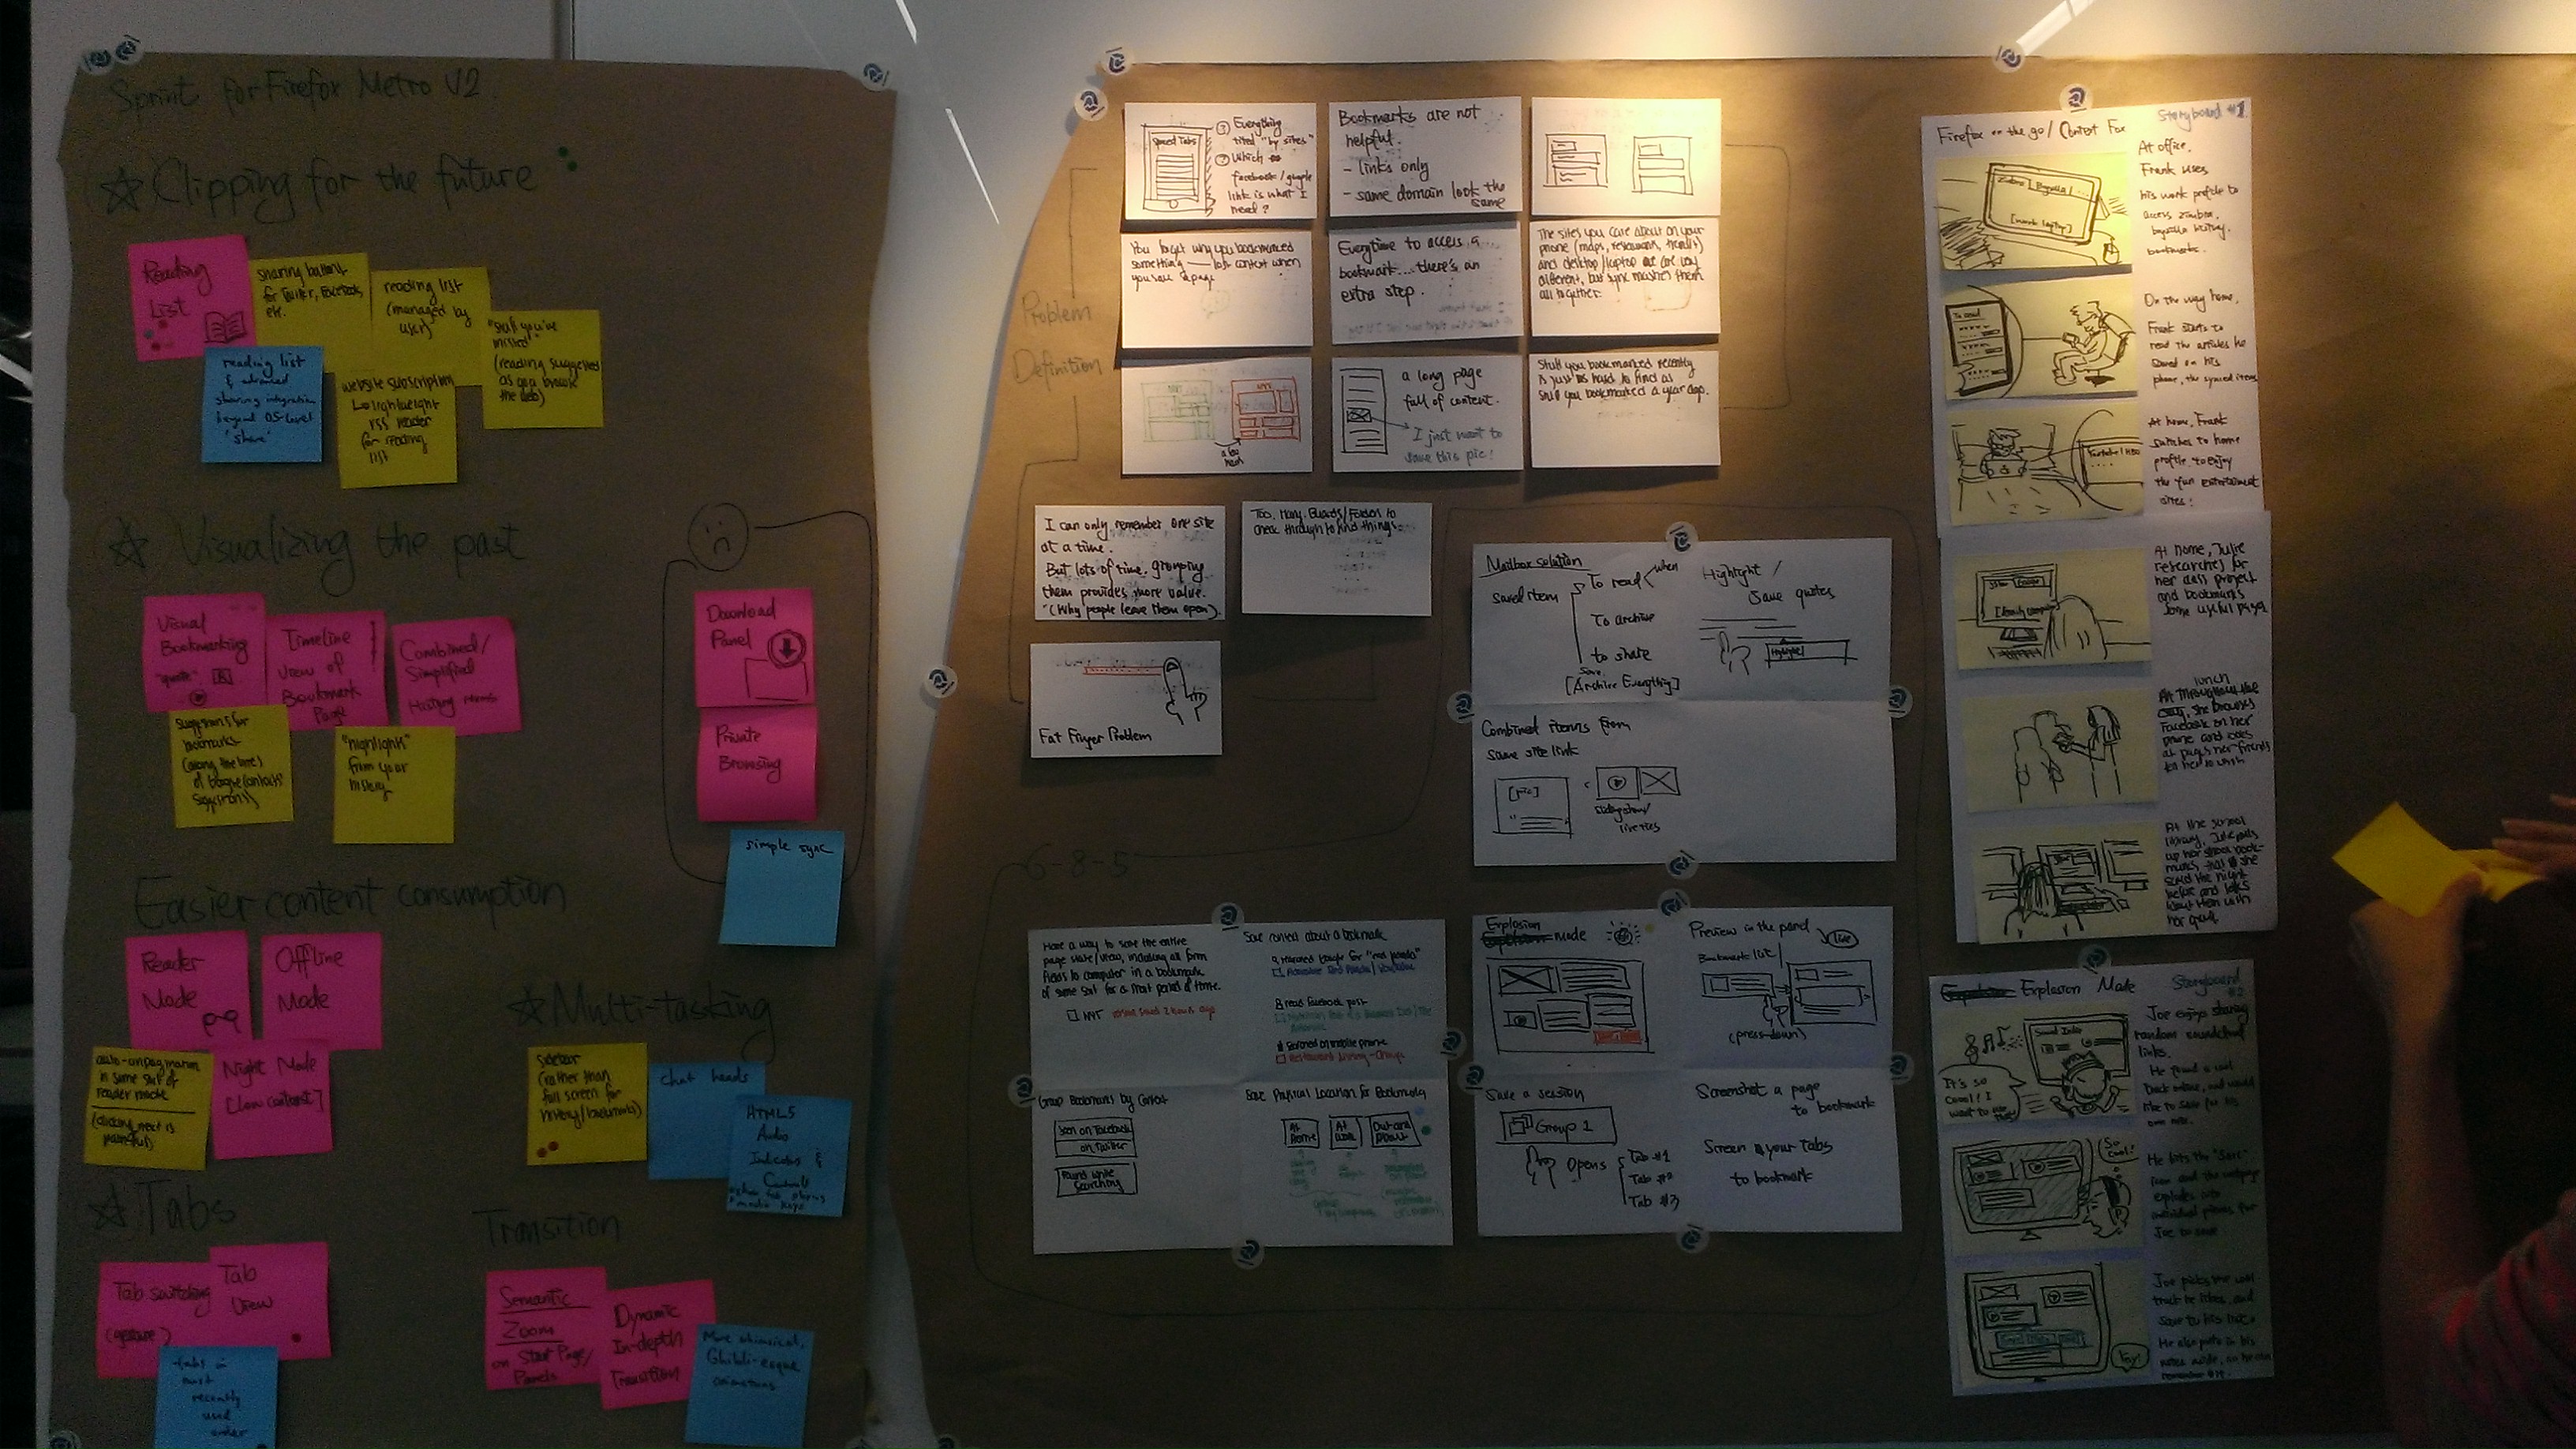 Sprint for Firefox Metro V2
☆ Clipping for the future
Reading
List
sharing buttons
for Twitter, Facebook,
etc.
reading list
(managed by
user)
"stuff you've
missed"
(reading suggested
as you browse
the web)
reading list
& advanced
sharing integration
beyond OS-level
"share"
website subscription
↳ lightweight
rss reader
for reading
list
☆ Visualizing the past
Visual
Bookmarking
"quote"
Timeline
View of
Bookmark
Page
Combined/
Simplified
History
suggestions for
bookmarks
(along the lines)
"highlights"
from your
history
Download
Panel
Private
Browsing
simple sync
Easier content consumption
Reader
Mode
Offline
Mode
in some sort of
reader mode
(clicking next is
painful)
Night Mode
[Low contrast]
☆ Multi-tasking
sidebar
(rather than
full screen for
history/bookmarks)
chat heads
HTML5
Audio
Indicator &
Control
☆ Tabs
Tab switching
(gesture)
Tab
View
-tabs in
most
recently
used
order
Transition
Semantic
Zoom
on Start Page/
Panels
Dynamic
In-depth
Transition
More whimsical,
Ghibli-esque
animations
Problem
Definition
Synced Tabs
① Everything
titled "by sites"
② Which
facebook/google
link is what I
need?
Bookmarks are not
helpful.
- links only
- same domain look the
same
You forget why you bookmarked
something — lost context when
you save a page
Everytime to access a
bookmark.... there's an
extra step.
The sites you care about on your
phone (maps, restaurants, trends)
and desktop/laptop are very
different, but sync mashes them
all together.
a long page
full of content.
I just want to
save this pic!
Stuff you bookmarked recently
is just as hard to find as
stuff you bookmarked a year ago.
I can only remember one site
at a time.
But lots of time, grouping
them provides more value.
(Why people leave them open).
Too Many Boards/Folders to
check through to find things.
Fat Finger Problem
Mailbox solution
saved item
To read
when
To archive
to share
Save
[Archive Everything]
Highlight /
Save quotes
Combined items from
same site link
slideshow/
live tiles
6-8-5
Have a way to save the entire
page state/view, including all form
fields to computer in a bookmark
of some sort for a short period of time.
NYT
Save context about a bookmark
Group Bookmarks by Context
Seen on Facebook
on Twitter
Found while
Searching
Save Physical Location for Bookmarks
At
Home
At
Work
Out and
About
Explosion
Mode
Preview in the panel
live
Bookmark list
(press-down)
Save a session
Group 1
Opens
Tab #1
Tab #2
Tab #3
Screenshot a page
to bookmark
Screen your Tabs
to bookmark
Storyboard #1
Firefox on the go/ Context Fox
At office,
Frank uses
his work profile to
access zimbra,
bugzilla
bookmarks.
[work laptop]
To read
On the way home,
Frank starts to
read the articles he
saved on his
phone, the synced items
At home, Frank
switches to home
profile to enjoy
the fun entertainment
sites!
At home, Julie
researches for
her class project
and bookmarks
some useful pages
lunch
she browses
Facebook on her
phone and looks
at pages her friends
At the school
library, Julie pulls
up her
she
saved the night
before and
them with
her
Storyboard
#2
Explosion Mode
It's so
cool! I
want to
Joe enjoys sharing
random soundcloud
links.
He found a cool
track online, and would
like to save for his
So
cool!
He hits the "Save"
icon and the webpage
explodes into
individual pieces for
Joe to save.
Joe picks the cool
track he likes, and
save to his list.
He also puts in his
notes aside, so he can
remember it.
Yay!